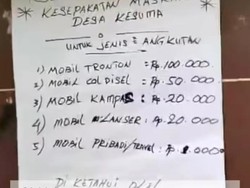 KESEPAKATAN MASYA
DESA KESUMA
UNTUK JENIS ANGKUTAN
1) MOBIL TRONTON = Rp 100.000
2) MOBIL COLDISEL = Rp. 50.000
3) MOBIL KAMPAS = Rp. 20.000
4) MOBIL LANSER : Rp. 20.000
5) MOBIL PRIBADI/TRAVEL : Rp. 000
DI KETAHUI OLEH